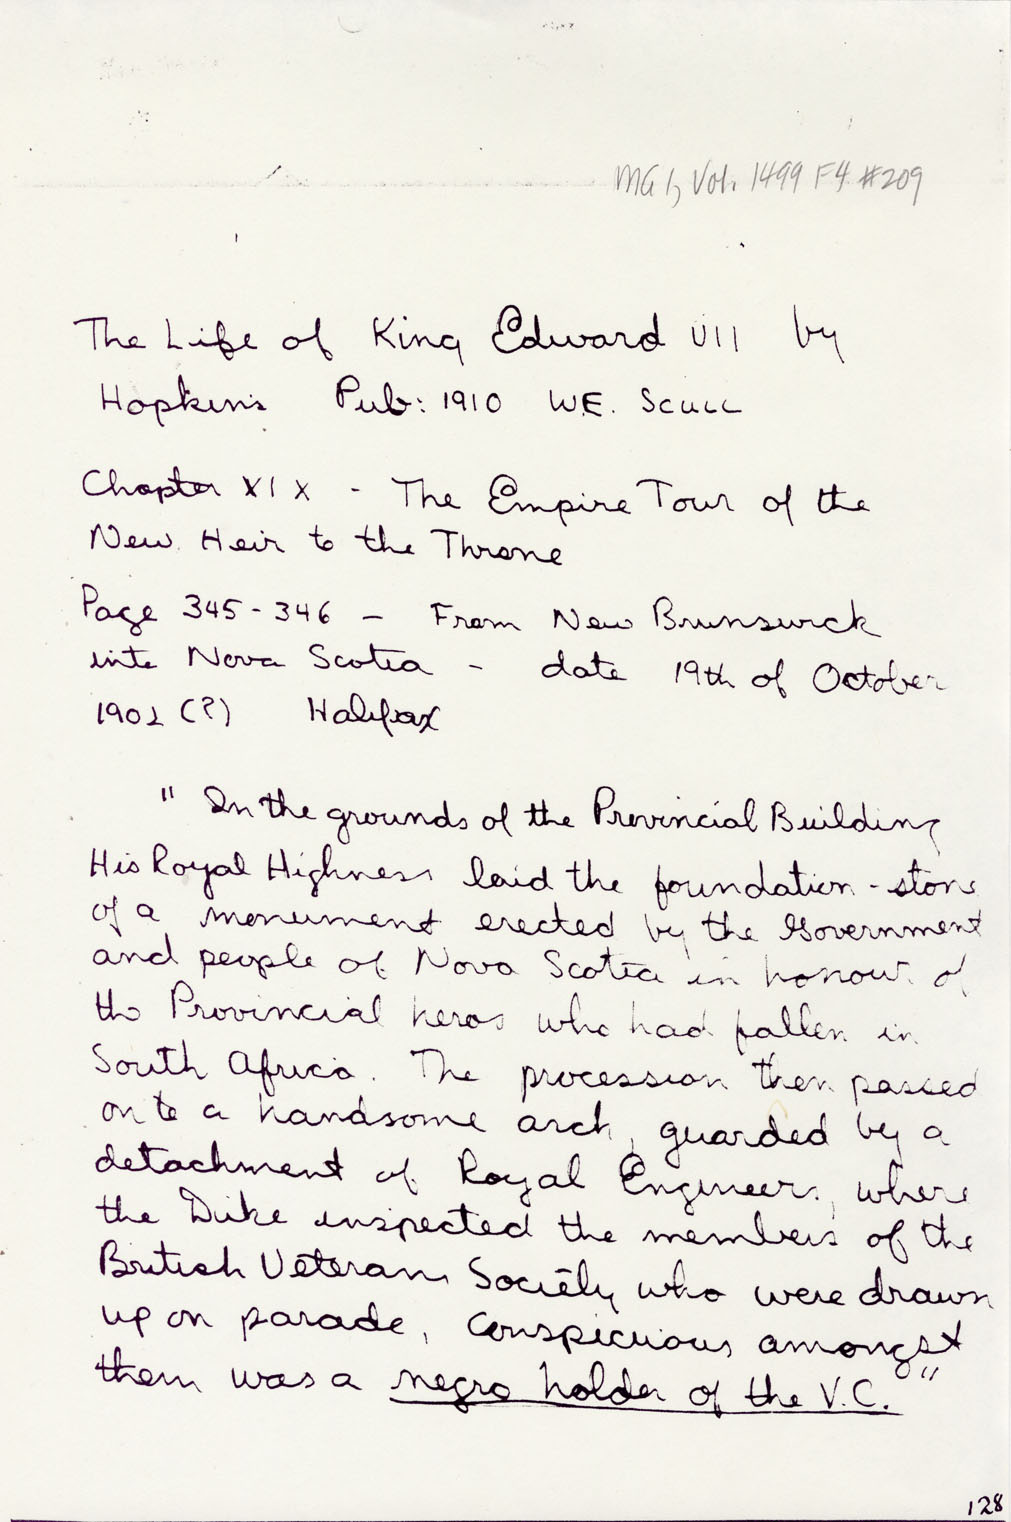 MG 1, Vol. 1499 F4 #209
The Life of King Edward VII by
Hopkins Pub: 1910 W.E. Scull
Chapter XIX - The Empire Tour of the
New Heir to the Throne
Page 345-346 - From New Brunswick
into Nova Scotia - date 19th of October
1902 (?) Halifax
" In the grounds of the Provincial Building
His Royal Highness laid the foundation-stone
of a monument erected by the Government
and people of Nova Scotia in honour of
the Provincial heros who had fallen in
South Africa. The procession then passed
on to a handsome arch, guarded by a
detachment of Royal Engineers, where
the Duke inspected the members of the
British Veterans Society who were drawn
up on parade, conspicuous amongst
them was a negro holder of the V.C."
128